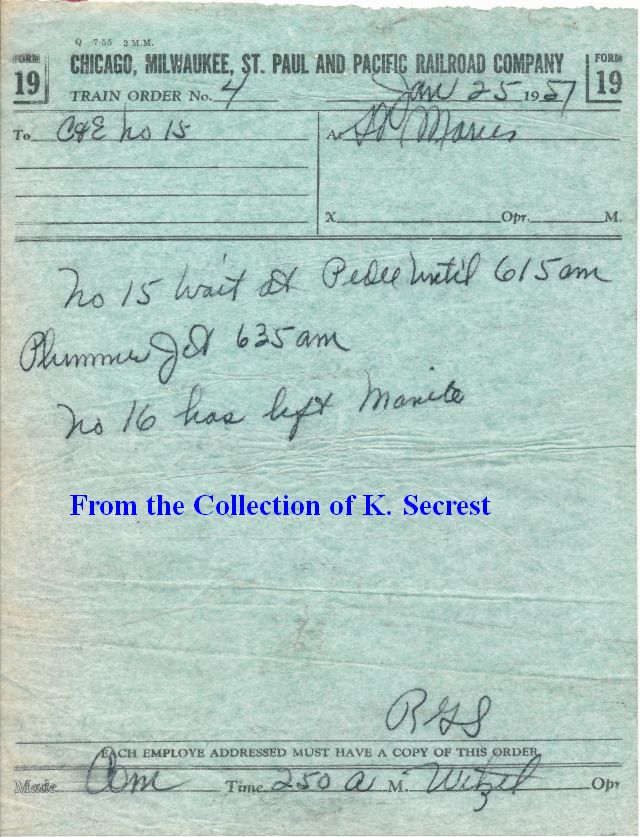 Q 7-55 2 M.M.
FORM 19 CHICAGO, MILWAUKEE, ST. PAUL AND PACIFIC RAILROAD COMPANY FORM 19
TRAIN ORDER No. 4 Jan 25 1957
To C&E No 15 At St Maries
X Opr. M.
No 15 wait at Pedee until 615 am
Plummer Jct 635 am
No 16 has left Manito
From the Collection of K. Secrest
RGS
EACH EMPLOYE ADDRESSED MUST HAVE A COPY OF THIS ORDER
Made Com Time 250 a M. Witzel Opr